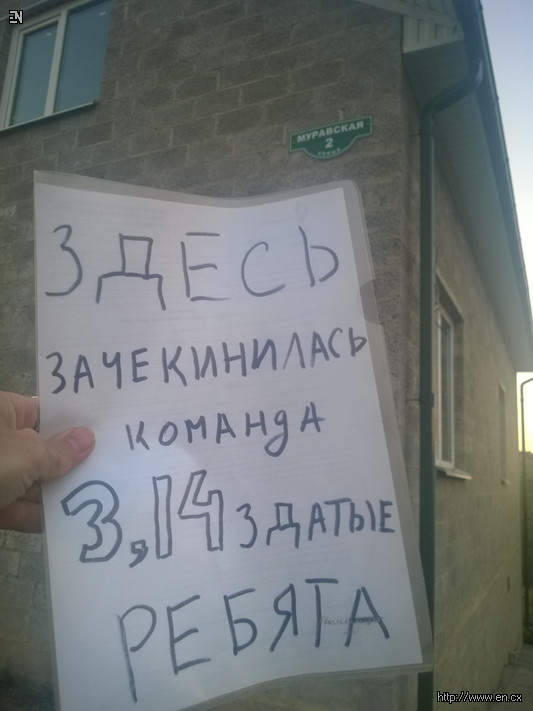 EN
МУРАВСКАЯ
2
УЛИЦА
ЗДЕСЬ
ЗАЧЕКИНИЛАСЬ
КОМАНДА
3,14ЗДАТЫЕ
РЕБЯТА
http://www.en.cx